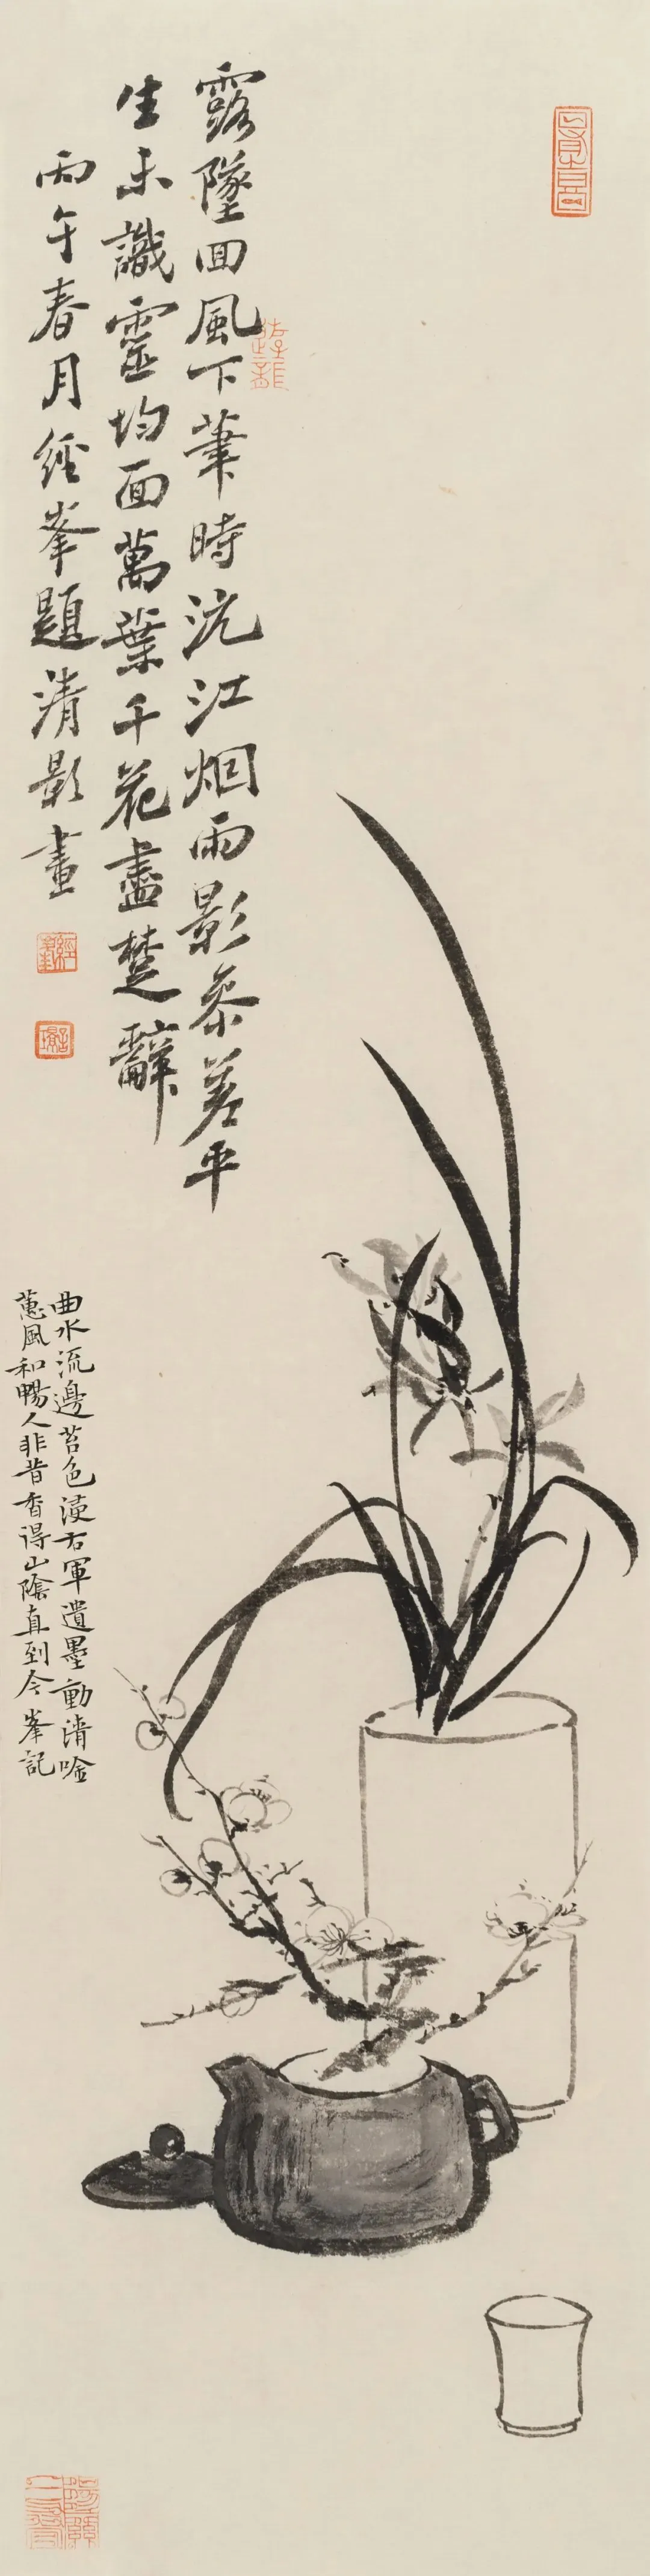 露墜回風下筆時沅江烟雨影參差平
生未識靈均面萬葉千花盡楚辭
丙午春月經峯題清影畫
曲水流邊苔色淒右軍遺墨動清吟
蕙風和暢人非昔香得山陰直到今 峯記